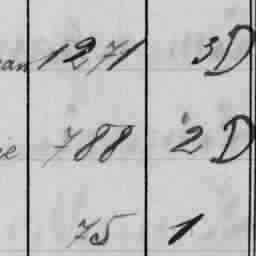 an 1271 3D
ie 788 2D
75 1